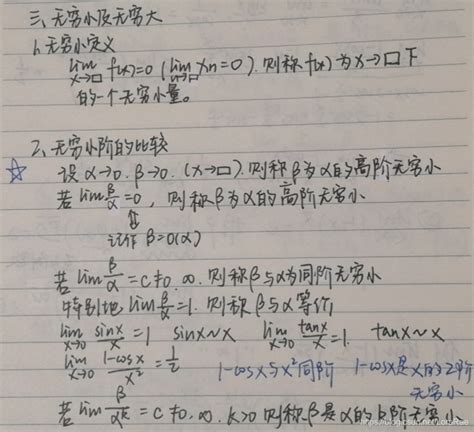 三、无穷小及无穷大
1、无穷小定义
lim x→□ f(x)=0 (lim n→□ xn=0). 则称 f(x) 为 x→□ 下
的一个无穷小量。
2、无穷小阶的比较
☆ 设 α→0. β→0. (x→□). 则称 β为 α的高阶无穷小
若 lim β/α = 0, 则称 β为 α的高阶无穷小
⇕
记作 β=o(α)
若 lim β/α = c≠0, ∞. 则称 β与 α为同阶无穷小
特别地 lim β/α =1. 则称 β与 α 等价
lim x→0 sinx/x = 1 sinx~x lim x→0 tanx/x = 1. tanx~x
lim x→0 1-cosx/x² = 1/2 1-cosx与x²同阶 1-cosx是x的2阶
无穷小
若 lim β/αk = c≠0, ∞, k>0 则称 β是 α的k阶无穷小